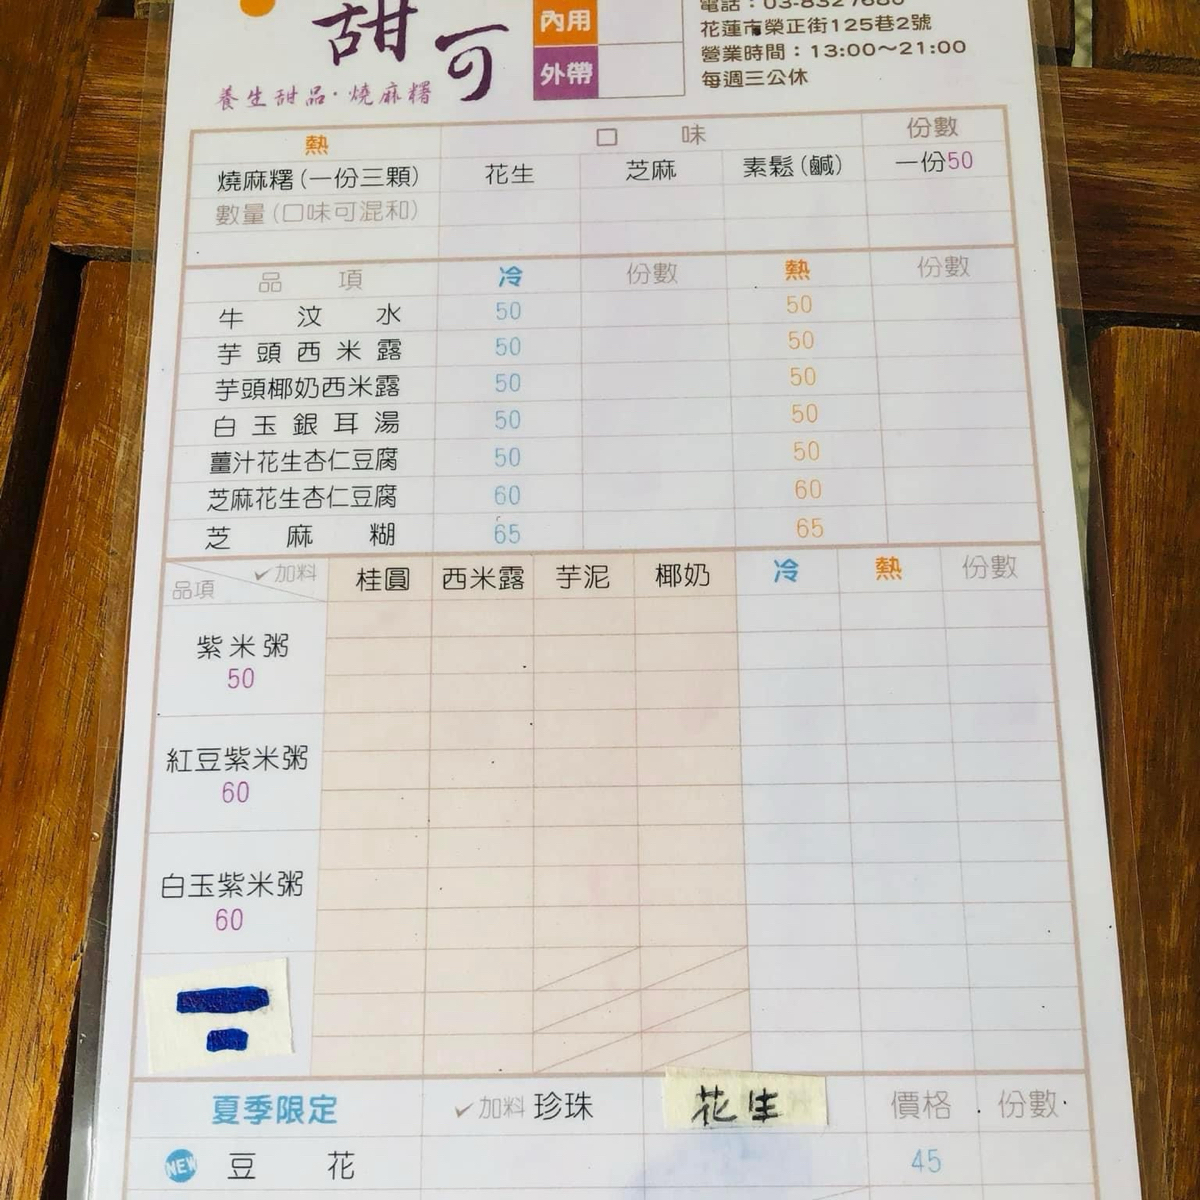 甜可
養生甜品·燒麻糬
內用
外帶
電話：03-8327680
花蓮市榮正街125巷2號
營業時間：13:00～21:00
每週三公休
熱 口味 份數
燒麻糬(一份三顆) 花生 芝麻 素鬆(鹹) 一份50
數量(口味可混和)
品項 冷 份數 熱 份數
牛汶水 50 50
芋頭西米露 50 50
芋頭椰奶西米露 50 50
白玉銀耳湯 50 50
薑汁花生杏仁豆腐 50 50
芝麻花生杏仁豆腐 60 60
芝麻糊 65 65
品項 ✓加料 桂圓 西米露 芋泥 椰奶 冷 熱 份數
紫米粥
50
紅豆紫米粥
60
白玉紫米粥
60
夏季限定 ✓加料 珍珠 花生 價格 份數
NEW 豆花 45